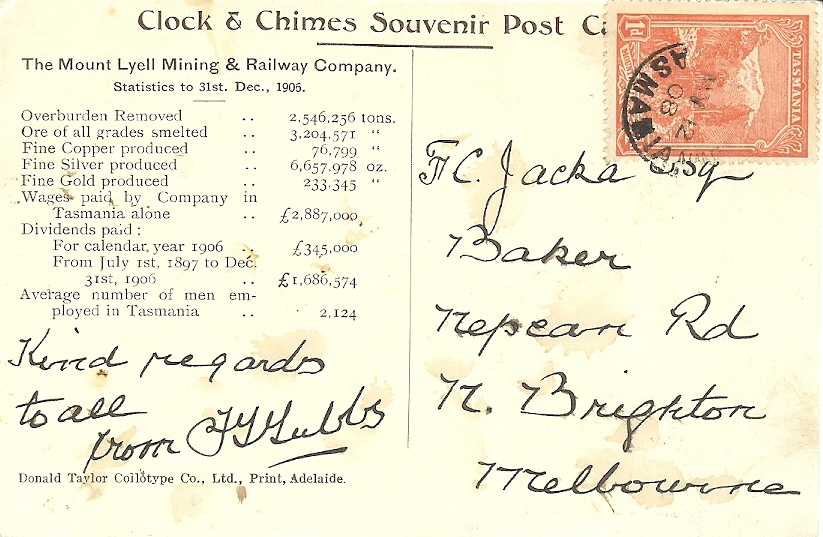 Clock & Chimes Souvenir Post
The Mount Lyell Mining & Railway Company.
Statistics to 31st. Dec., 1906.
Overburden Removed .. 2,546,256 tons.
Ore of all grades smelted .. 3,204,571 "
Fine Copper produced .. 76,799 "
Fine Silver produced .. 6,657,978 oz.
Fine Gold produced .. 233,345 "
Wages paid by Company in
Tasmania alone .. £2,887,000
Dividends paid :
For calendar year 1906 .. £345,000
From July 1st, 1897 to Dec.
31st, 1906 .. £1,686,574
Average number of men em-
ployed in Tasmania .. 2,124
Kind regards
to all
from
Donald Taylor Collotype Co., Ltd., Print, Adelaide.
1d
TASMANIA
TASMANIA
08
F.C. Jacka Esq
Baker
Nepean Rd
N. Brighton
Melbourne